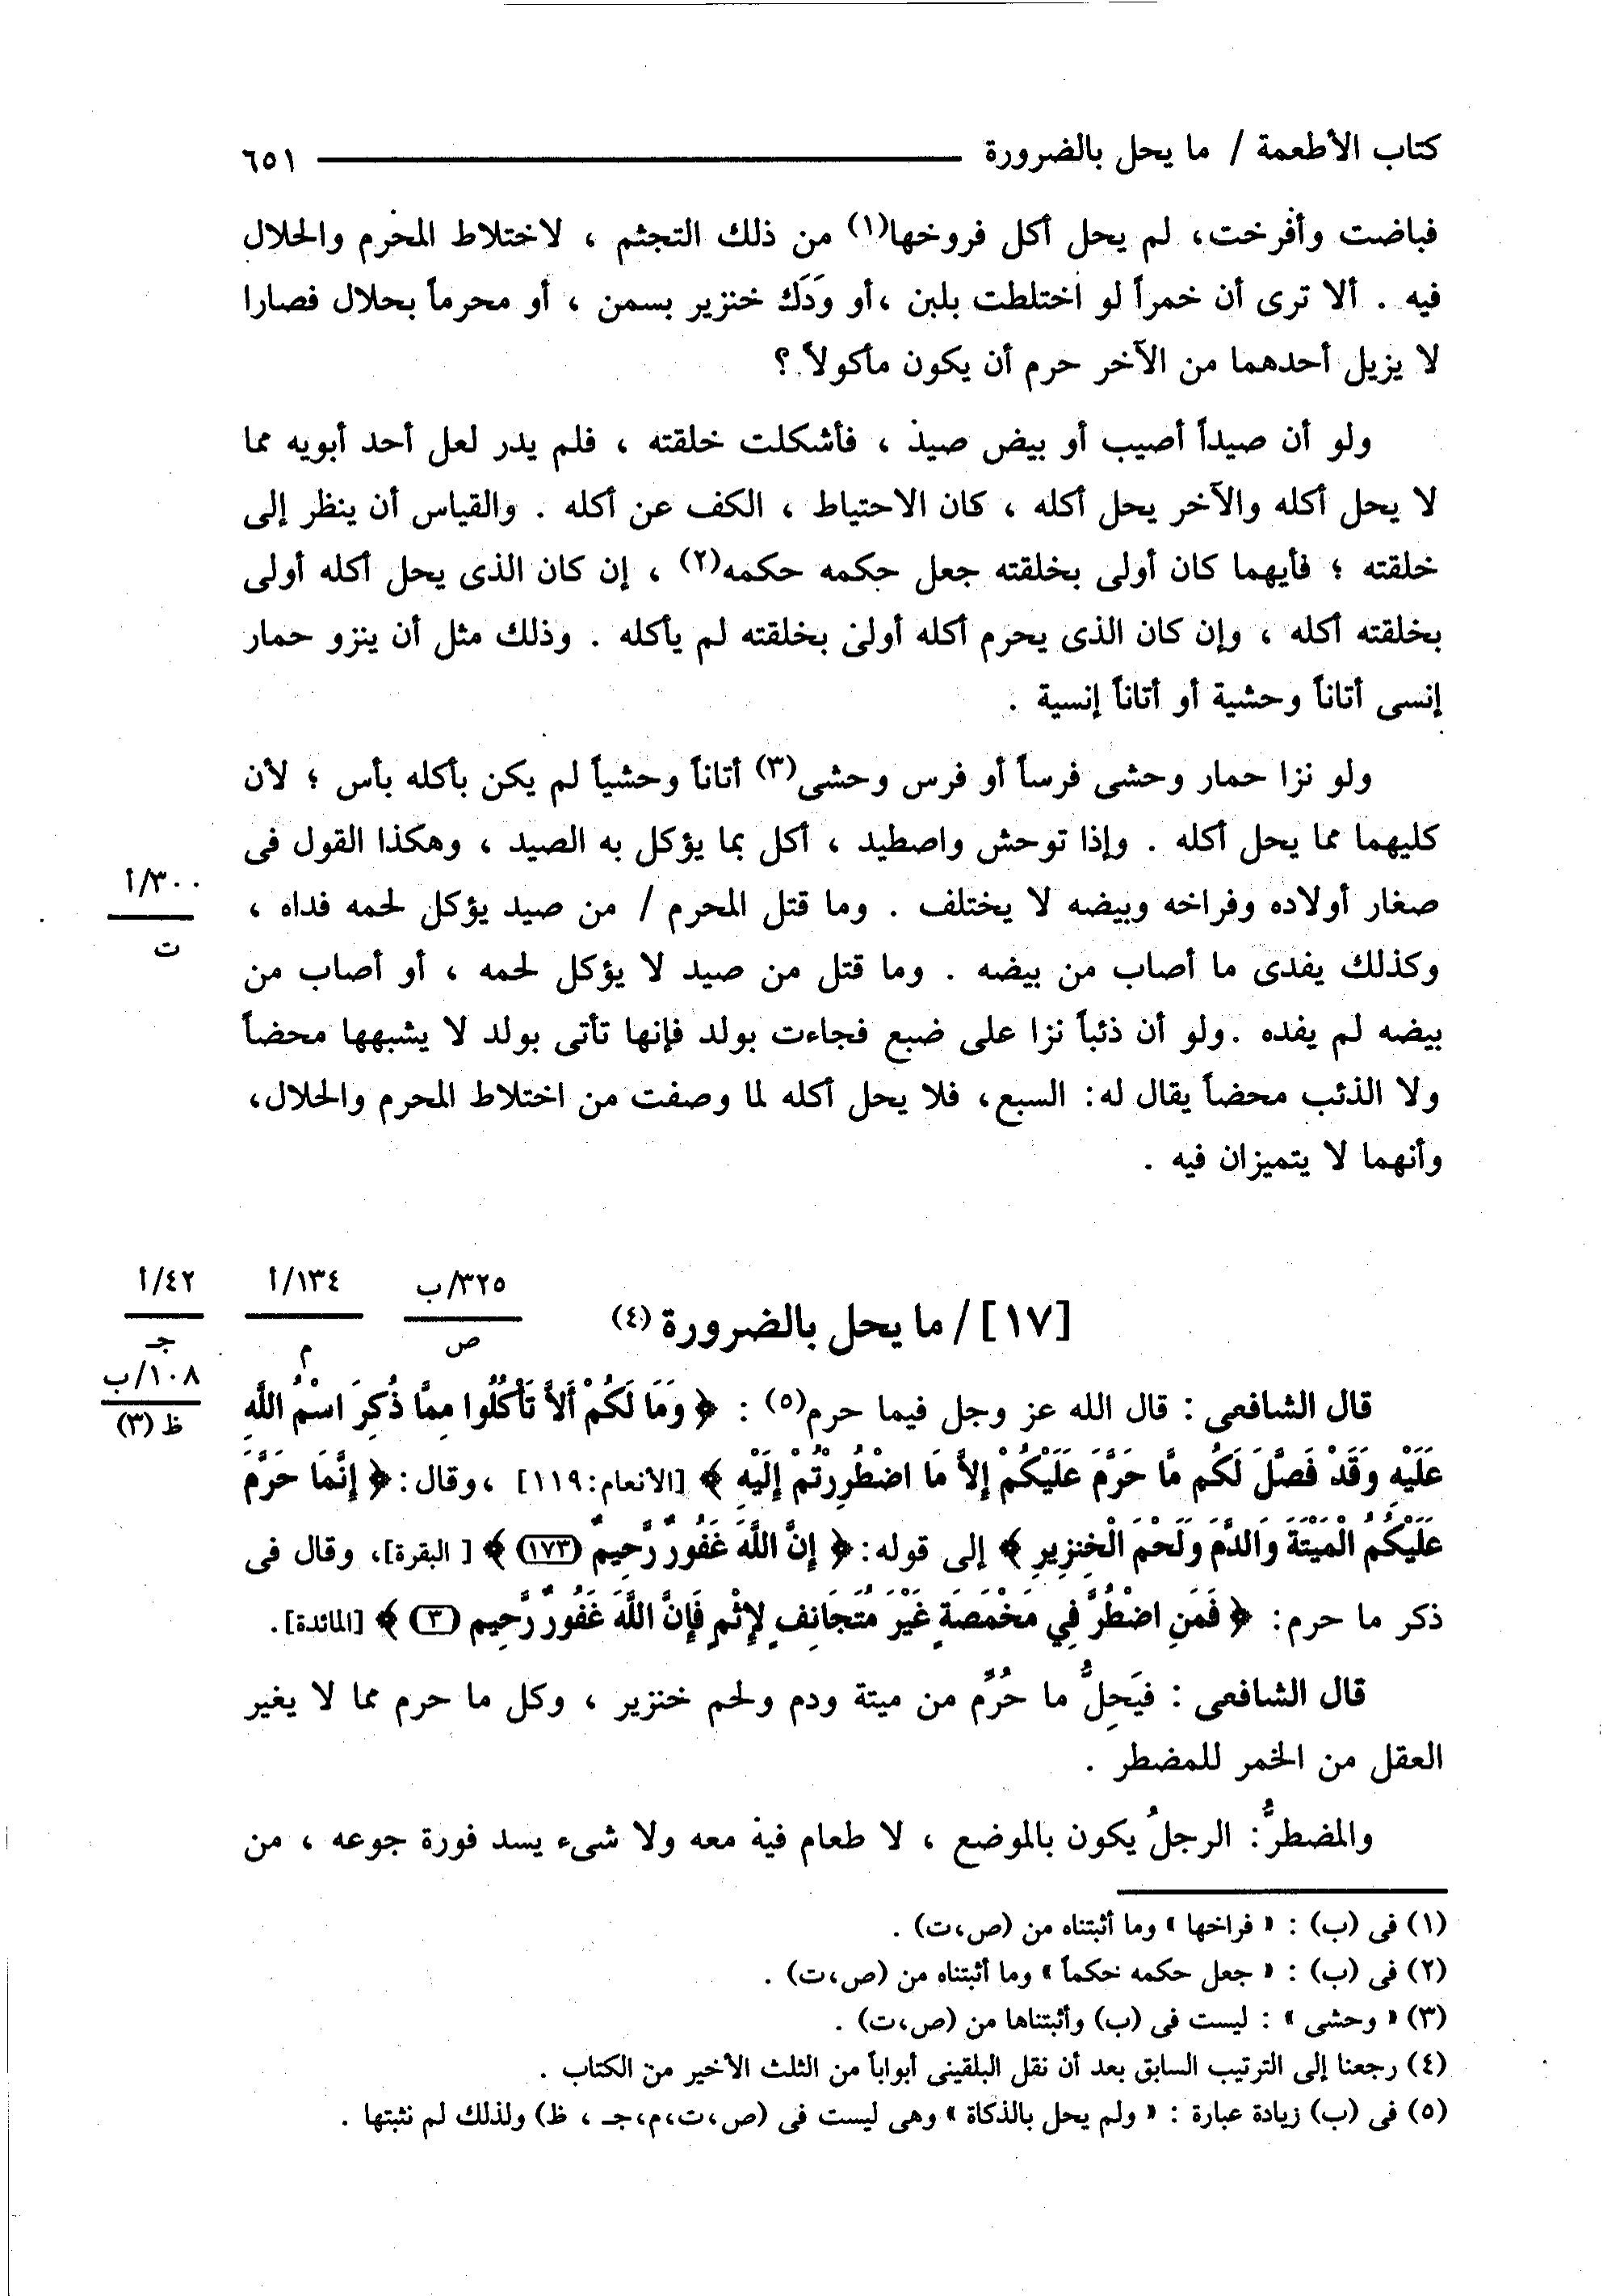 كتاب الأطعمة / ما يحل بالضرورة ٦٥١
فباضت وأفرخت، لم يحل أكل فروخها(١) من ذلك التجثم ، لاختلاط المحرم والحلال
فيه . ألا ترى أن خمراً لو اختلطت بلبن ،أو وَدَك خنزير بسمن ، أو محرماً بحلال فصارا
لا يزيل أحدهما من الآخر حرم أن يكون مأكولاً ؟
ولو أن صيداً أصيب أو بيض صيد ، فأشكلت خلقته ، فلم يدر لعل أحد أبويه مما
لا يحل أكله والآخر يحل أكله ، كان الاحتياط ، الكف عن أكله . والقياس أن ينظر إلى
خلقته ؛ فأيهما كان أولى بخلقته جعل حكمه حكمه(٢) ، إن كان الذى يحل أكله أولى
بخلقته أكله ، وإن كان الذى يحرم أكله أولى بخلقته لم يأكله . وذلك مثل أن ينزو حمار
إنسى أتاناً وحشية أو أتاناً إنسية .
ولو نزا حمار وحشى فرساً أو فرس وحشى(٣) أتاناً وحشياً لم يكن بأكله بأس ؛ لأن
كليهما مما يحل أكله . وإذا توحش واصطيد ، أكل بما يؤكل به الصيد ، وهكذا القول فى
صغار أولاده وفراخه وبيضه لا يختلف . وما قتل المحرم / من صيد يؤكل لحمه فداه ،
٣٠٠/أ
ت
وكذلك يفدى ما أصاب من بيضه . وما قتل من صيد لا يؤكل لحمه ، أو أصاب من
بيضه لم يفده .ولو أن ذئباً نزا على ضبع فجاءت بولد فإنها تأتى بولد لا يشبهها محضاً
ولا الذئب محضاً يقال له: السبع، فلا يحل أكله لما وصفت من اختلاط المحرم والحلال،
وأنهما لا يتميزان فيه .
[١٧] / ما يحل بالضرورة (٤)
٣٢٥/ب
ص
١٣٤/أ
م
٤٢/أ
جـ
١٠٨/ب
ظ (٣)
قال الشافعى : قال الله عز وجل فيما حرم(٥) : ﴿ وَمَا لَكُمْ أَلاَّ تَأْكُلُوا مِمَّا ذُكِرَ اسْمُ اللَّهِ
عَلَيْهِ وَقَدْ فَصَّلَ لَكُم مَّا حَرَّمَ عَلَيْكُمْ إِلاَّ مَا اضْطُرِرْتُمْ إِلَيْهِ ﴾ [الأنعام:١١٩] ، وقال: ﴿ إِنَّمَا حَرَّمَ
عَلَيْكُمُ الْمَيْتَةَ وَالدَّمَ وَلَحْمَ الْخِنزِيرِ ﴾ إلى قوله: ﴿ إِنَّ اللَّهَ غَفُورٌ رَّحِيمٌ (١٧٣) ﴾ [ البقرة]، وقال فى
ذكر ما حرم: ﴿ فَمَنِ اضْطُرَّ فِي مَخْمَصَةٍ غَيْرَ مُتَجَانِفٍ لإِثْمٍ فَإِنَّ اللَّهَ غَفُورٌ رَّحِيم (٣) ﴾ [المائدة].
قال الشافعى : فيَحِلُّ ما حُرِّم من ميتة ودم ولحم خنزير ، وكل ما حرم مما لا يغير
العقل من الخمر للمضطر .
والمضطرُّ: الرجلُ يكون بالموضع ، لا طعام فيه معه ولا شىء يسد فورة جوعه ، من
(١) فى (ب) : « فراخها » وما أثبتناه من (ص،ت) .
(٢) فى (ب) : « جعل حكمه حكماً » وما أثبتناه من (ص،ت) .
(٣) « وحشى » : ليست فى (ب) وأثبتناها من (ص،ت) .
(٤) رجعنا إلى الترتيب السابق بعد أن نقل البلقينى أبواباً من الثلث الأخير من الكتاب .
(٥) فى (ب) زيادة عبارة : « ولم يحل بالذكاة » وهى ليست فى (ص،ت،م،جـ ، ظ) ولذلك لم نثبتها .